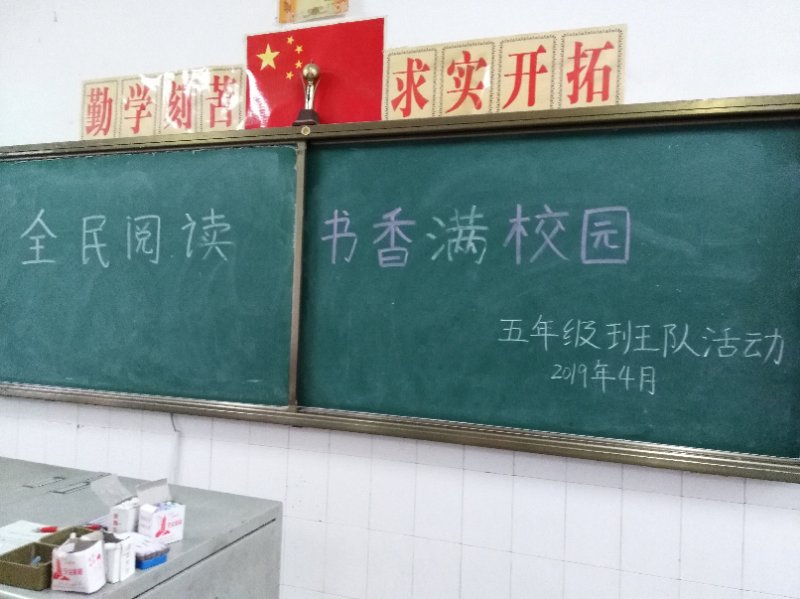 勤学刻苦 求实开拓
全民阅读 书香满校园
五年级班队活动
2019年4月